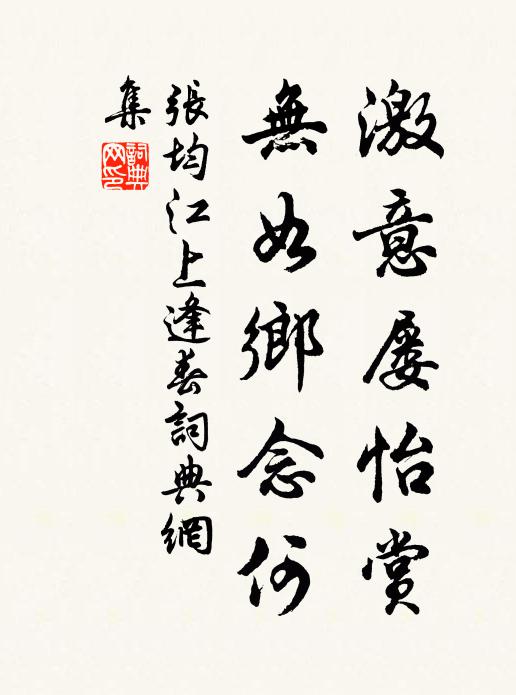 激意屡怡賞
無如鄉念何
張均江上逢春詞典網
集
詞典网印